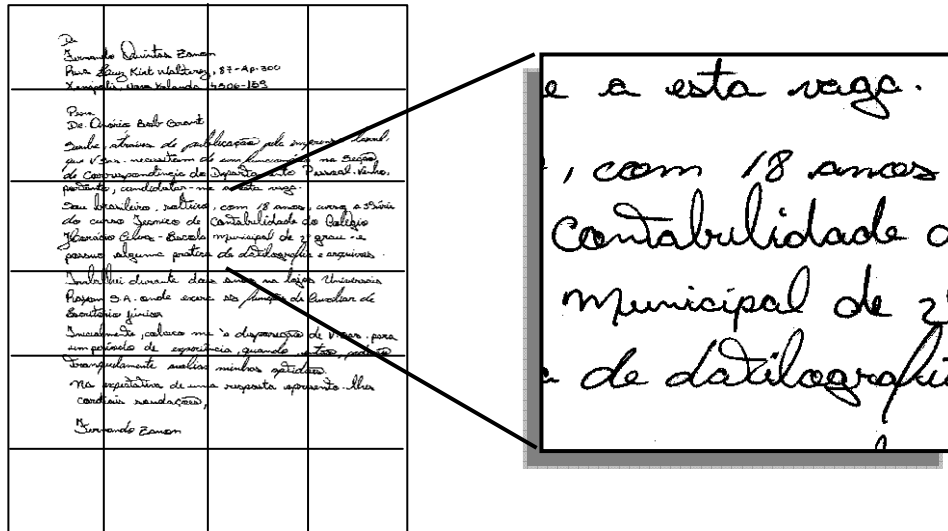 De
Fernando Quintas Zaman
Rua Kirt Walterez, 87-Ap-300
Xenópolis, Nova Yolanda 4506-159
Para
De. Onório Bret Grant
Soube, através de publicação pela imprensa local,
que V.Sas. necessitam de um funcionário na Seção
de Correspondência do Departamento Pessoal. Venho,
portanto, candidatar-me a esta vaga.
Sou brasileiro, solteiro, com 18 anos, curso a série
do curso Técnico de Contabilidade do Colégio
Horácio Silva - Escola Municipal de 2º grau - e
possuo alguma prática de datilografia e arquivos.
Trabalhei durante dois anos na lojas Universais
S.A. onde exerci as funções de Auxiliar de
Escritório júnior
Inicialmente, coloco me à disposição de V.Sas. para
um período de experiência, quando, então, poderão
tranquilamente avaliar minhas aptidões.
Na expectativa de uma resposta apresento-lhes
cordiais saudações,
Fernando Zaman
e a esta vaga.
, com 18 anos
Contabilidade d
Municipal de 2
a de datilografia